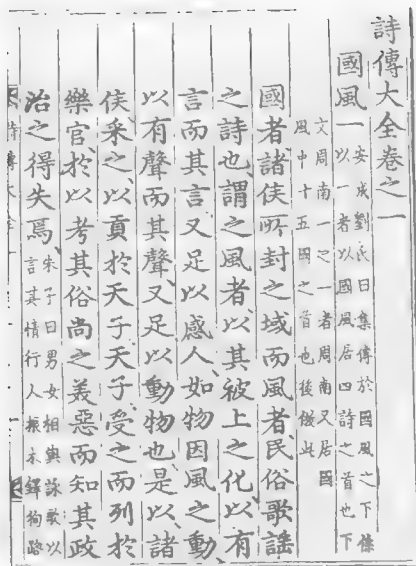 詩傳大全卷之一
國風一
安成劉氏曰集傳於國風之下係
以一者以國風居四詩之首也下
文周南一之一者周南又居國
風中十五國之首也後倣此
國者諸侯所封之域而風者民俗歌謠
之詩也謂之風者以其被上之化以有
言而其言又足以感人如物因風之動
以有聲而其聲又足以動物也是以諸
侯采之以貢於天子天子受之而列於
樂官於以考其俗尚之美惡而知其政
治之得失焉
朱子曰男女相與詠歌以
言其情行人振木鐸徇路